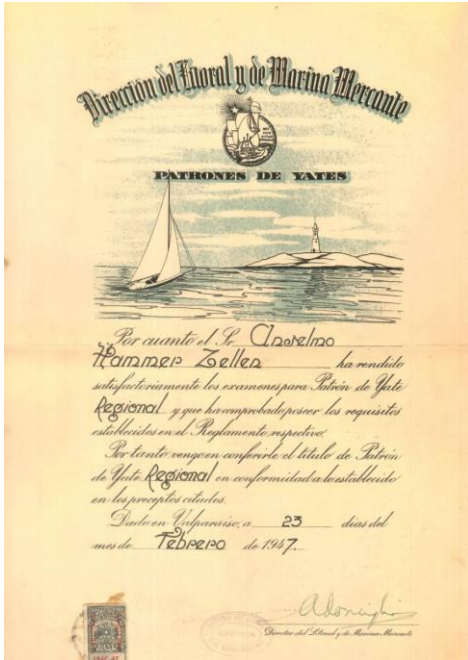 Dirección del Litoral y de Marina Mercante
PATRONES DE YATES
Por cuanto el Sr. Anselmo
Hammer Zeller ha rendido
satisfactoriamente los examenes para Patrón de Yate
Regional y que ha comprobado poseer los requisitos
establecidos en el Reglamento respectivo.
Por tanto vengo en conferirle el titulo de Patrón
de Yate Regional en conformidad a lo establecido
en los preceptos citados.
Dado en Valparaiso, a 23 dias del
mes de Febrero de 1947.
Director del Litoral y de Marina Mercante